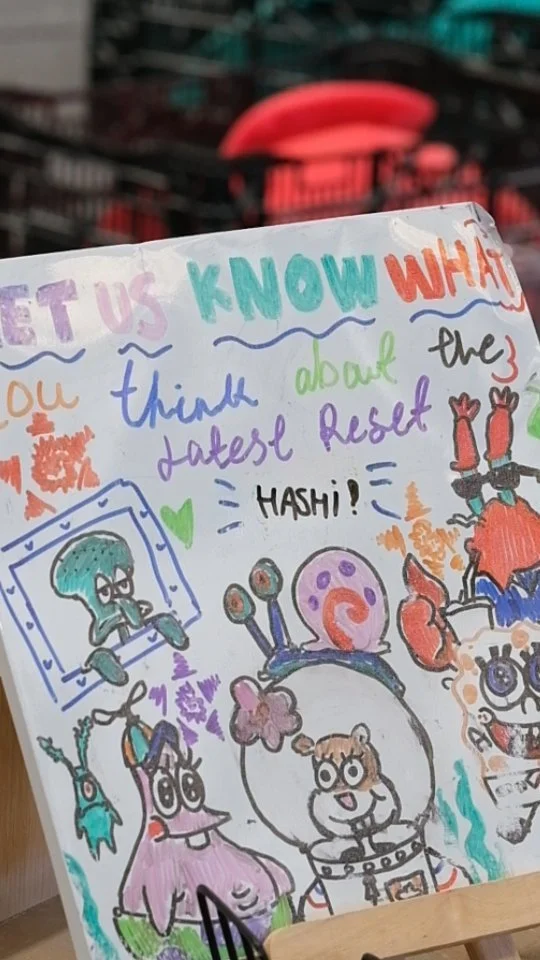 LET US KNOW WHAT
you think about the
Latest Reset
HASHi!